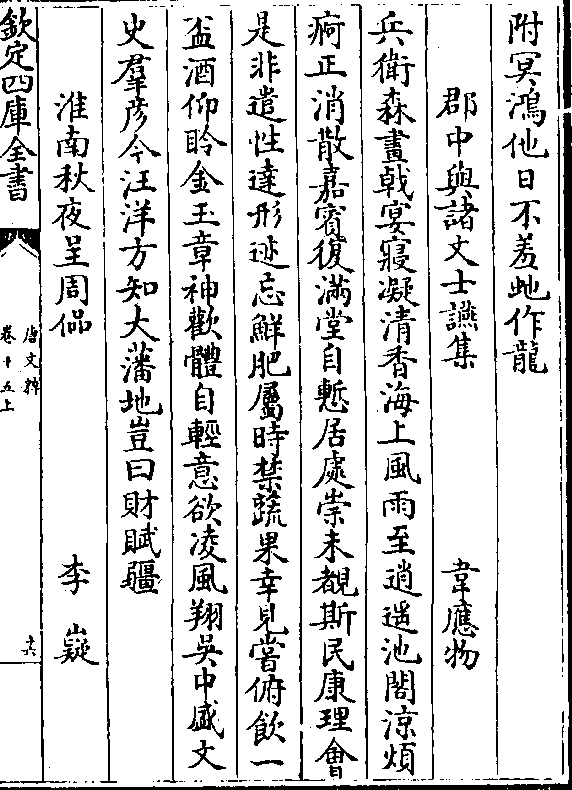 附冥鴻他日不羞虵作龍
郡中與諸文士讌集 韋應物
兵衛森畫戟宴寢凝清香海上風雨至逍遙池閣涼煩
痾正消散嘉賓復滿堂自慙居處崇未覩斯民康理會
是非遣性達形迹忘鮮肥屬時禁蔬果幸見嘗俯飲一
盃酒仰聆金玉章神歡體自輕意欲凌風翔吳中盛文
史羣彥今汪洋方知大藩地豈曰財賦疆
淮南秋夜呈周侃 李嶷
欽定四庫全書
唐文粹
卷十五上
十六